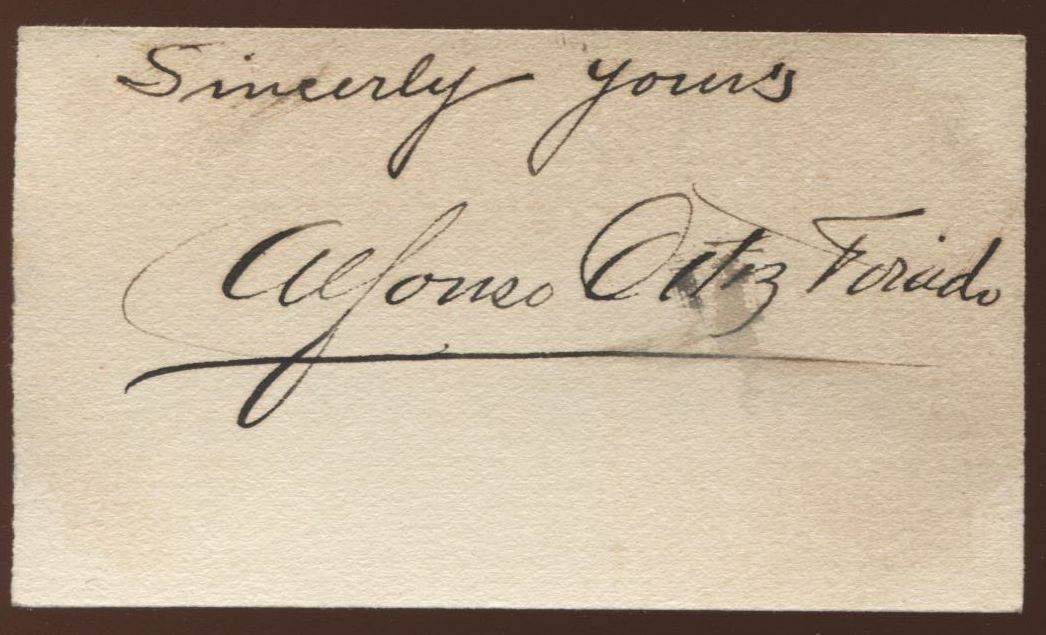 Sincerly yours
Alfonso Ortiz Tirado